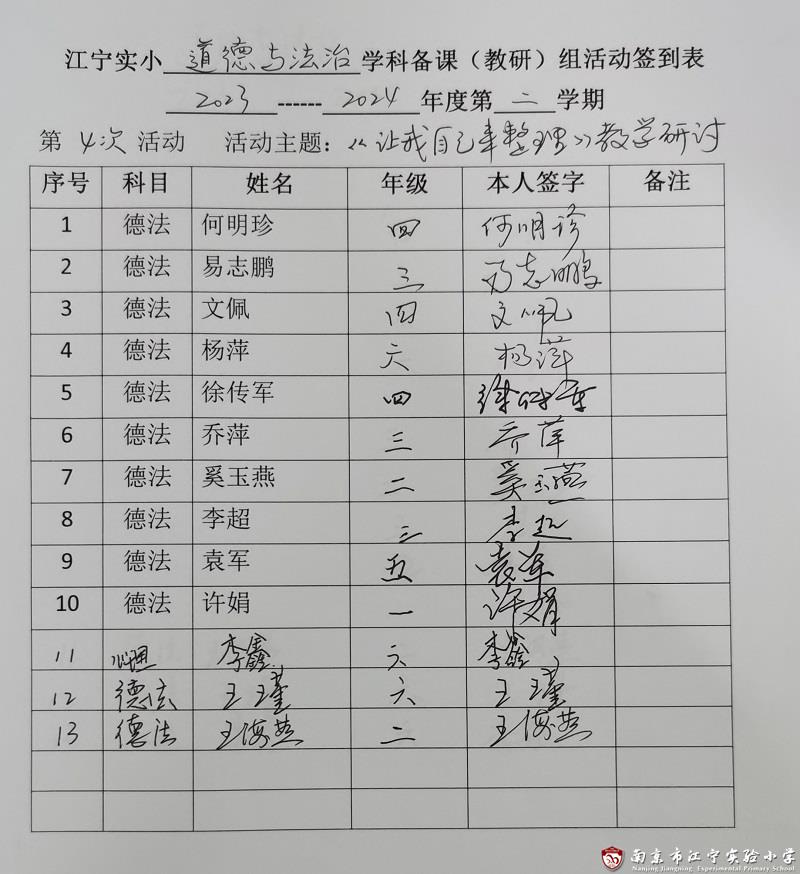 江宁实小 道德与法治 学科备课（教研）组活动签到表
2023 ------ 2024 年度第 二 学期
第 4次 活动 活动主题：《让我自己来整理》教学研讨
序号 科目 姓名 年级 本人签字 备注
1 德法 何明珍 四 何明珍
2 德法 易志鹏 三 易志鹏
3 德法 文佩 四 文佩
4 德法 杨萍 六 杨萍
5 德法 徐传军 四 徐传军
6 德法 乔萍 三 乔萍
7 德法 奚玉燕 二 奚玉燕
8 德法 李超 三 李超
9 德法 袁军 五 袁军
10 德法 许娟 一 许娟
11 心理 李鑫 六 李鑫
12 德法 王瑾 六 王瑾
13 德法 王海燕 二 王海燕
南京市江宁实验小学
Nanjing Jiangning Experimental Primary School